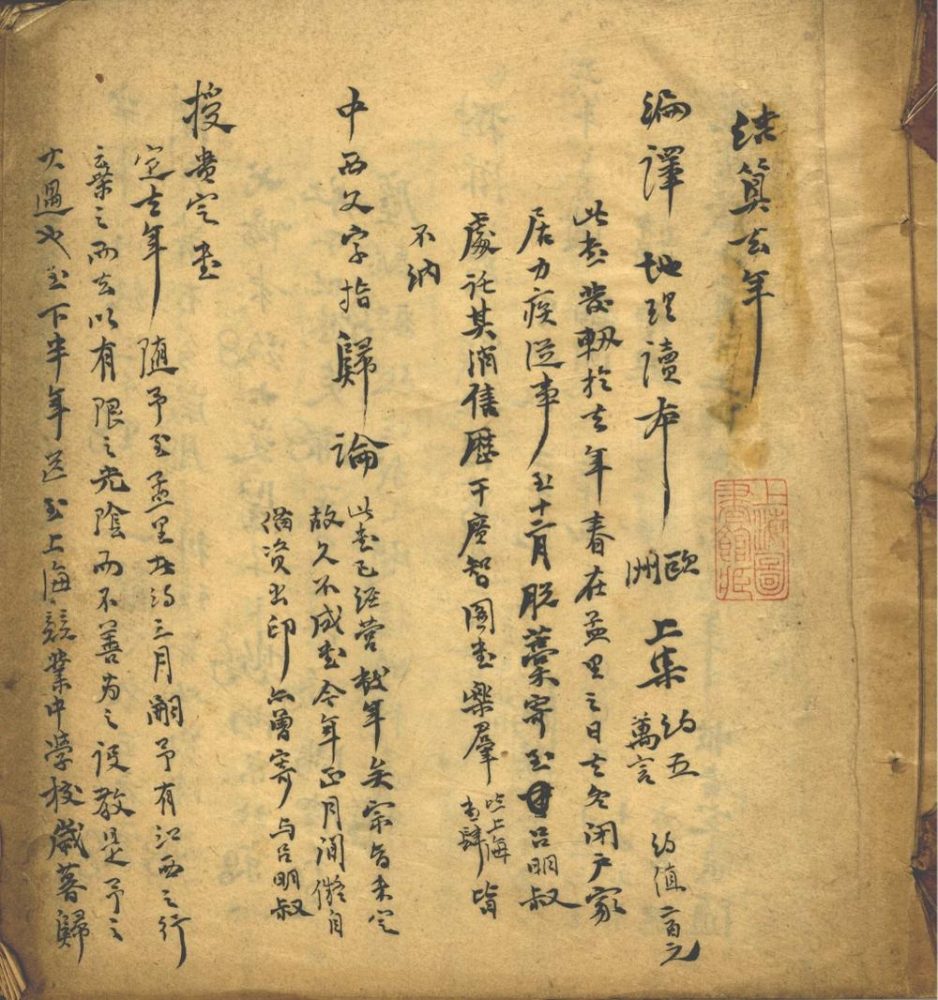 結算去年
編譯 地理讀本 歐洲 上集 約五萬言 約值二百元
此書發軔於去年春在孟里之日去冬閉戶家
居力疾從事至十二月脫藁寄至呂明叔
處託其消售歷干廣智圖書樂羣此上海書肆皆
不納
中西文字指歸論 此書已經營数年矣宗旨未定
故久不成書今年正月間儗自
備資出印亦曾寄與呂明叔
授貴定書
定去年隨予至孟里共約三月嗣予有江西之行
棄之而去以有限之光陰而不善為之設教是予之
大過也至下半年送至上海競業中學校歲暮歸
上海圖書館藏